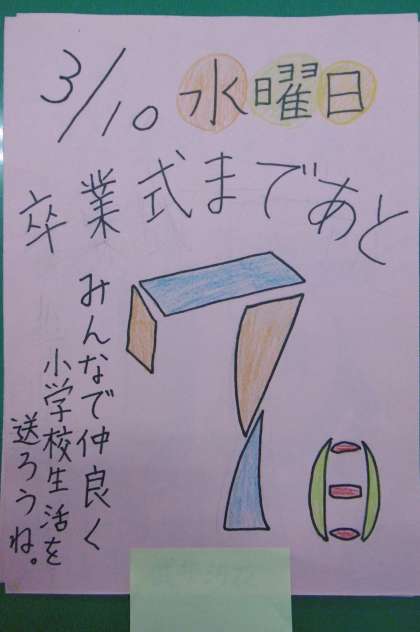 3/10 水曜日
卒業式まであと
7日
みんなで仲良く
小学校生活を
送ろうね。